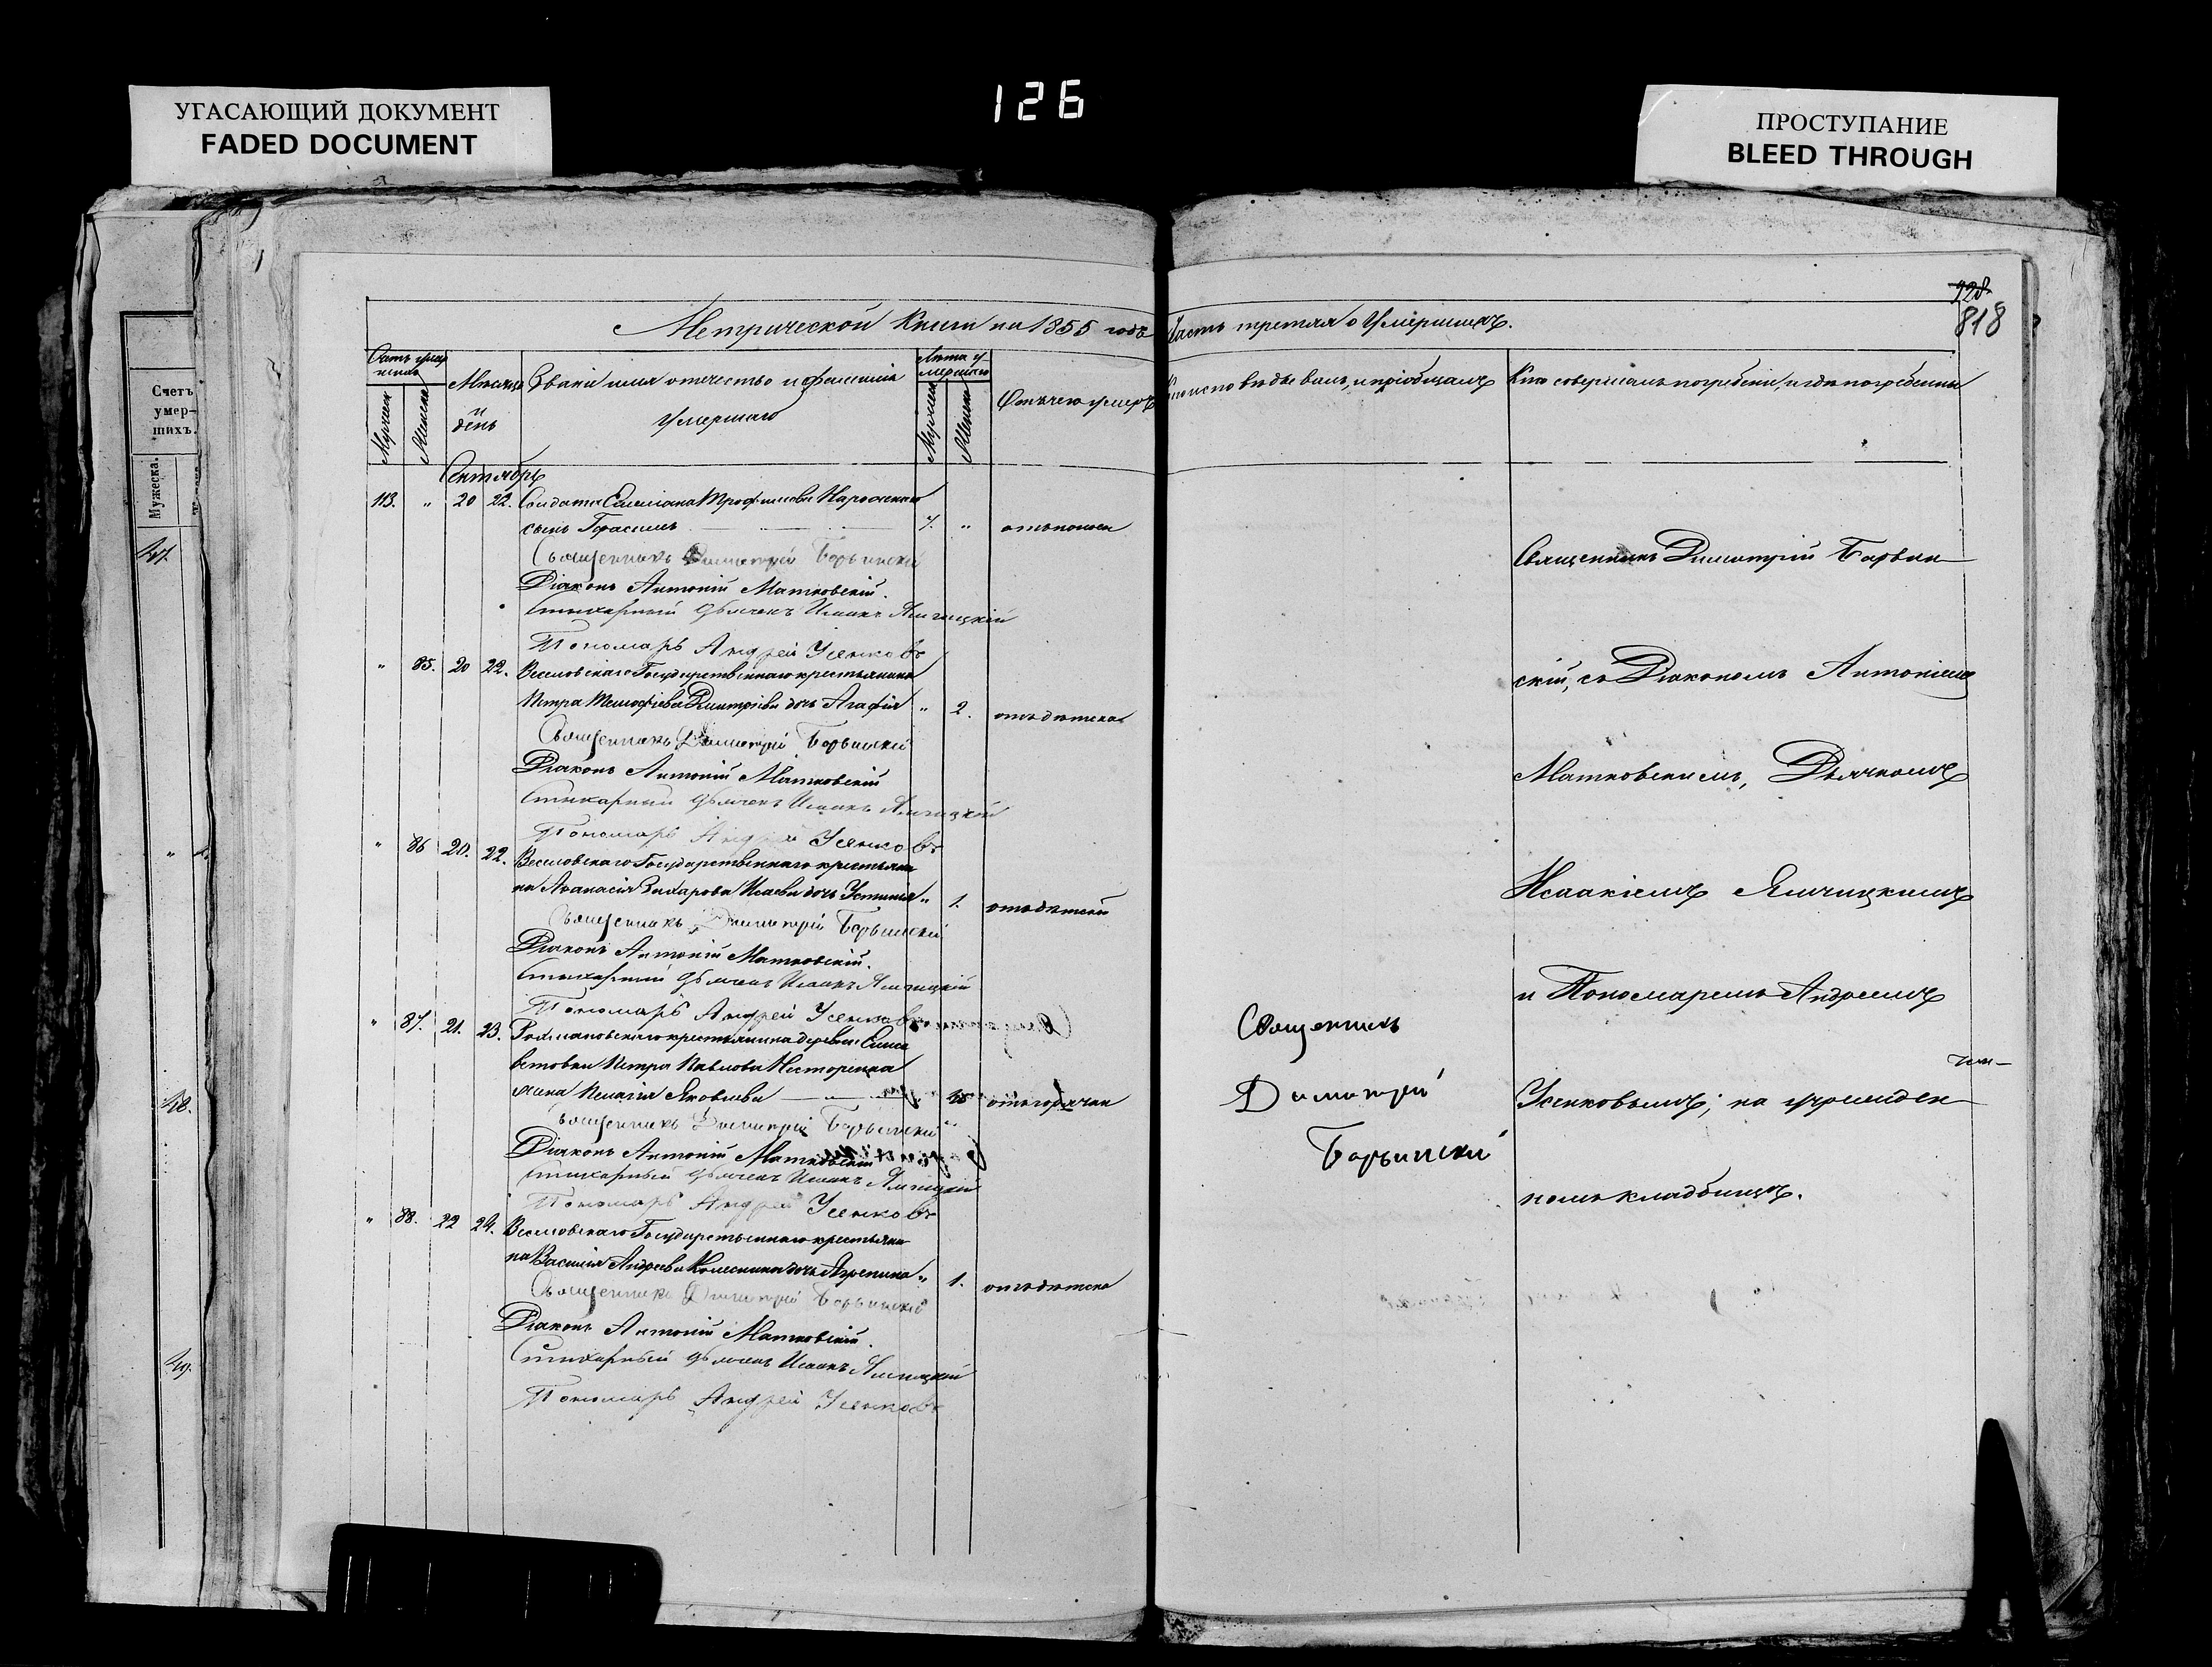 УГАСАЮЩИЙ ДОКУМЕНТ
FADED DOCUMENT
126
ПРОСТУПАНИЕ
BLEED THROUGH
928
818
Метрической Книги на 1855 годъ Часть третья о Умершихъ.
Счетъ умершихъ
Мѣсяцъ и день
Званіе имя отечество и фамилія Умершаго
Лѣта умершаго
Отъ чего умеръ
Кто исповѣдывалъ, и пріобщалъ
Кто совершалъ погребеніе, и гдѣ погребены
Счетъ
умер-
шихъ.
Мужеска.
47.
48.
49.
Сентябрь
113. " 20 22. Солдата Емеліана Трофимова
сынъ Герасимъ 7. " отъ поноса
Священникъ Димитрій Борьинскій
Діаконъ Антоній Матковскій.
Стихарный дьячекъ Исаакъ Ямчицкій
Пономарь Андрей Усенковъ
" 85. 20 22. Веселовскаго Государственнаго крестьянина
Петра Тимофіева Дмитріева дочь Агафія " 2. отъ
Священникъ Димитрій Борьинскій
Діаконъ Антоній Матковскій
Стихарный дьячекъ Исаакъ Ямчицкій
Пономарь Андрей Усенковъ
" 86 20. 22. Веселовскаго Государственнаго крестьяни
на Аѳанасія Захарова Исаева дочь Устинія " 1. отъ
Священникъ Димитрій Борьинскій
Діаконъ Антоній Матковскій.
Стихарный дьячекъ Исаакъ Ямчицкій
Пономарь Андрей Усенковъ
" 87. 21. 23. крестьянина деревни Елиса
ветовки Петра Павлова Нестеренка
жена Пелагія Яковлева отъ горячки
Священникъ Димитрій Борьинскій
Діаконъ Антоній Матковскій
Стихарный дьячекъ Исаакъ Ямчицкій
Пономарь Андрей Усенковъ
" 88. 22 24. Веселовскаго Государственнаго крестьяни
на Василія Андреева Колесника дочь Агрепина " 1. отъ
Священникъ Димитрій Борьинскій
Діаконъ Антоній Матковскій.
Стихарный дьячекъ Исаакъ Ямчицкій
Пономарь Андрей Усенковъ
Священникъ
Димитрій
Борьинскій
Священникъ Димитрій Борьин
скій, съ Діакономъ Антоніемъ
Матковскимъ, Дьячкомъ
Исаакіемъ Ямчицкимъ
и Пономаремъ Андреемъ
Усенковымъ; на учрежден
номъ кладбищѣ.